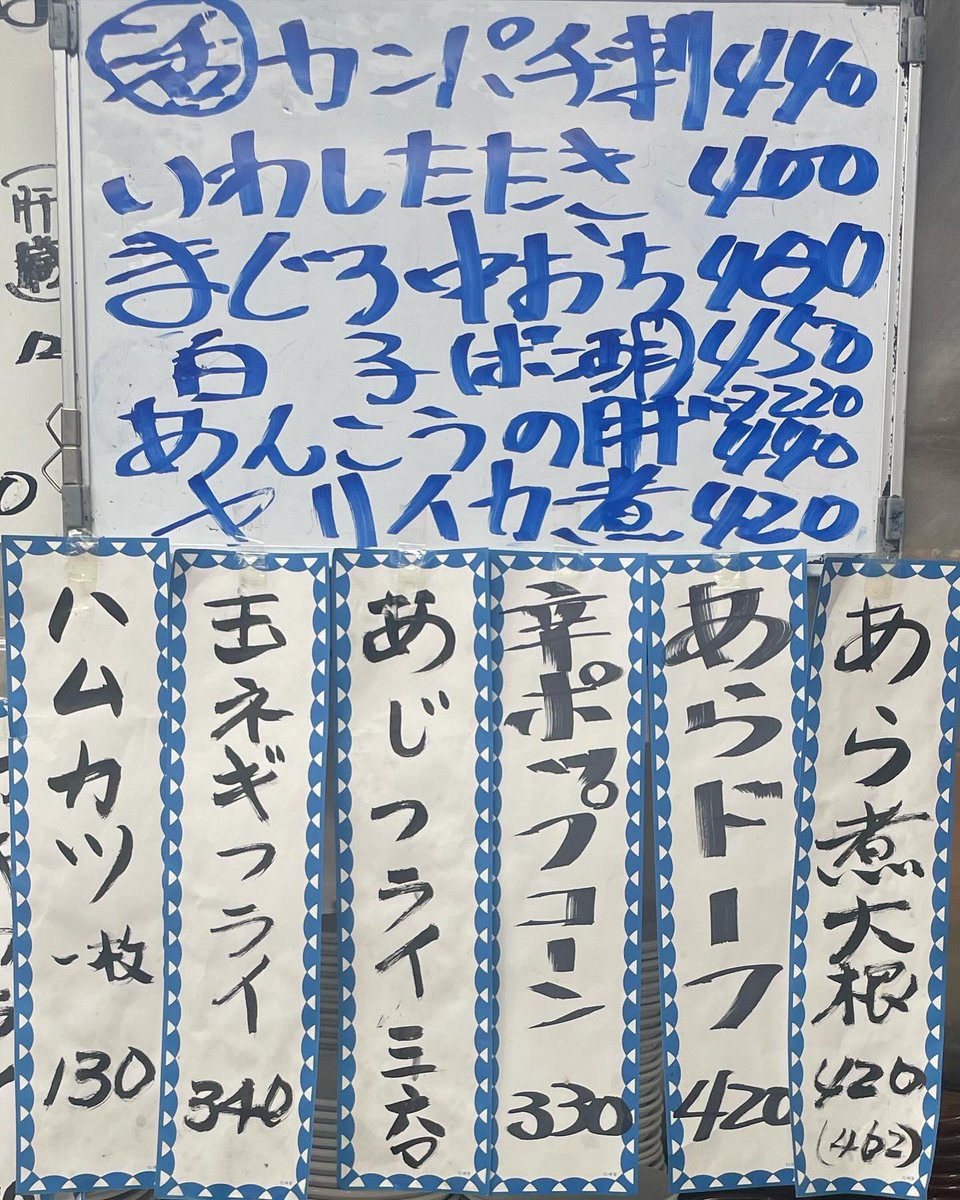 活 カンパチ刺 440
いわしたたき 400
まぐろ中おち 480
白子ぽん酢 450
220
あんこうの肝 440
ヤリイカ煮 420
あら煮大根 420 (462)
あらドーフ 420
辛ポップコーン 330
あじフライ 三六〇
玉ネギフライ 340
ハムカツ 一枚 130